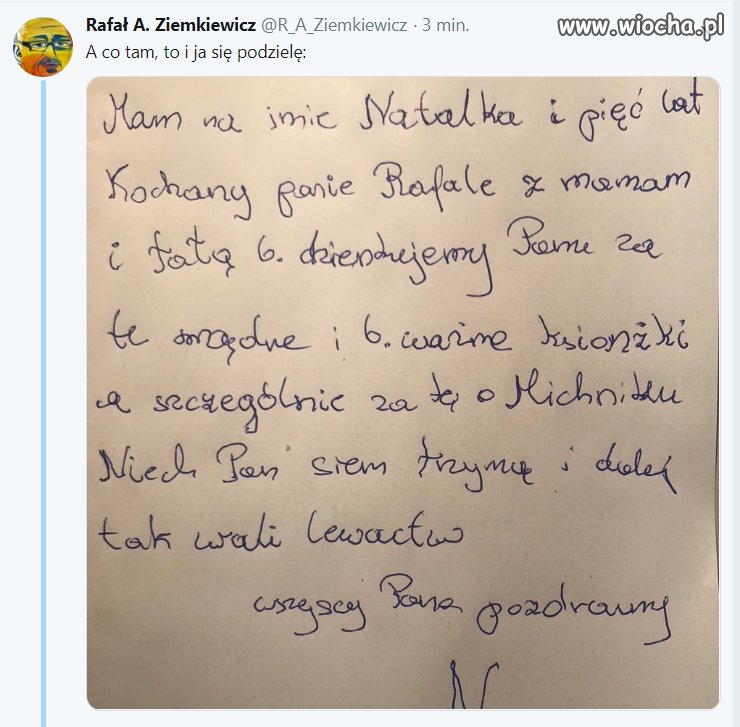 Rafał A. Ziemkiewicz @R_A_Ziemkiewicz · 3 min.
www.wiocha.pl
A co tam, to i ja się podzielę:
Mam na imie Natalka i pięć lat
Kochany panie Rafale z mamam
i tatą b. dzienkujemy Panu za
te mądre i b. ważne ksionżki
a szczególnie za tę o Michniku
Niech Pan siem trzymą i dalej
tak wali lewactwo
wszyscy Pana pozdrawmy
N